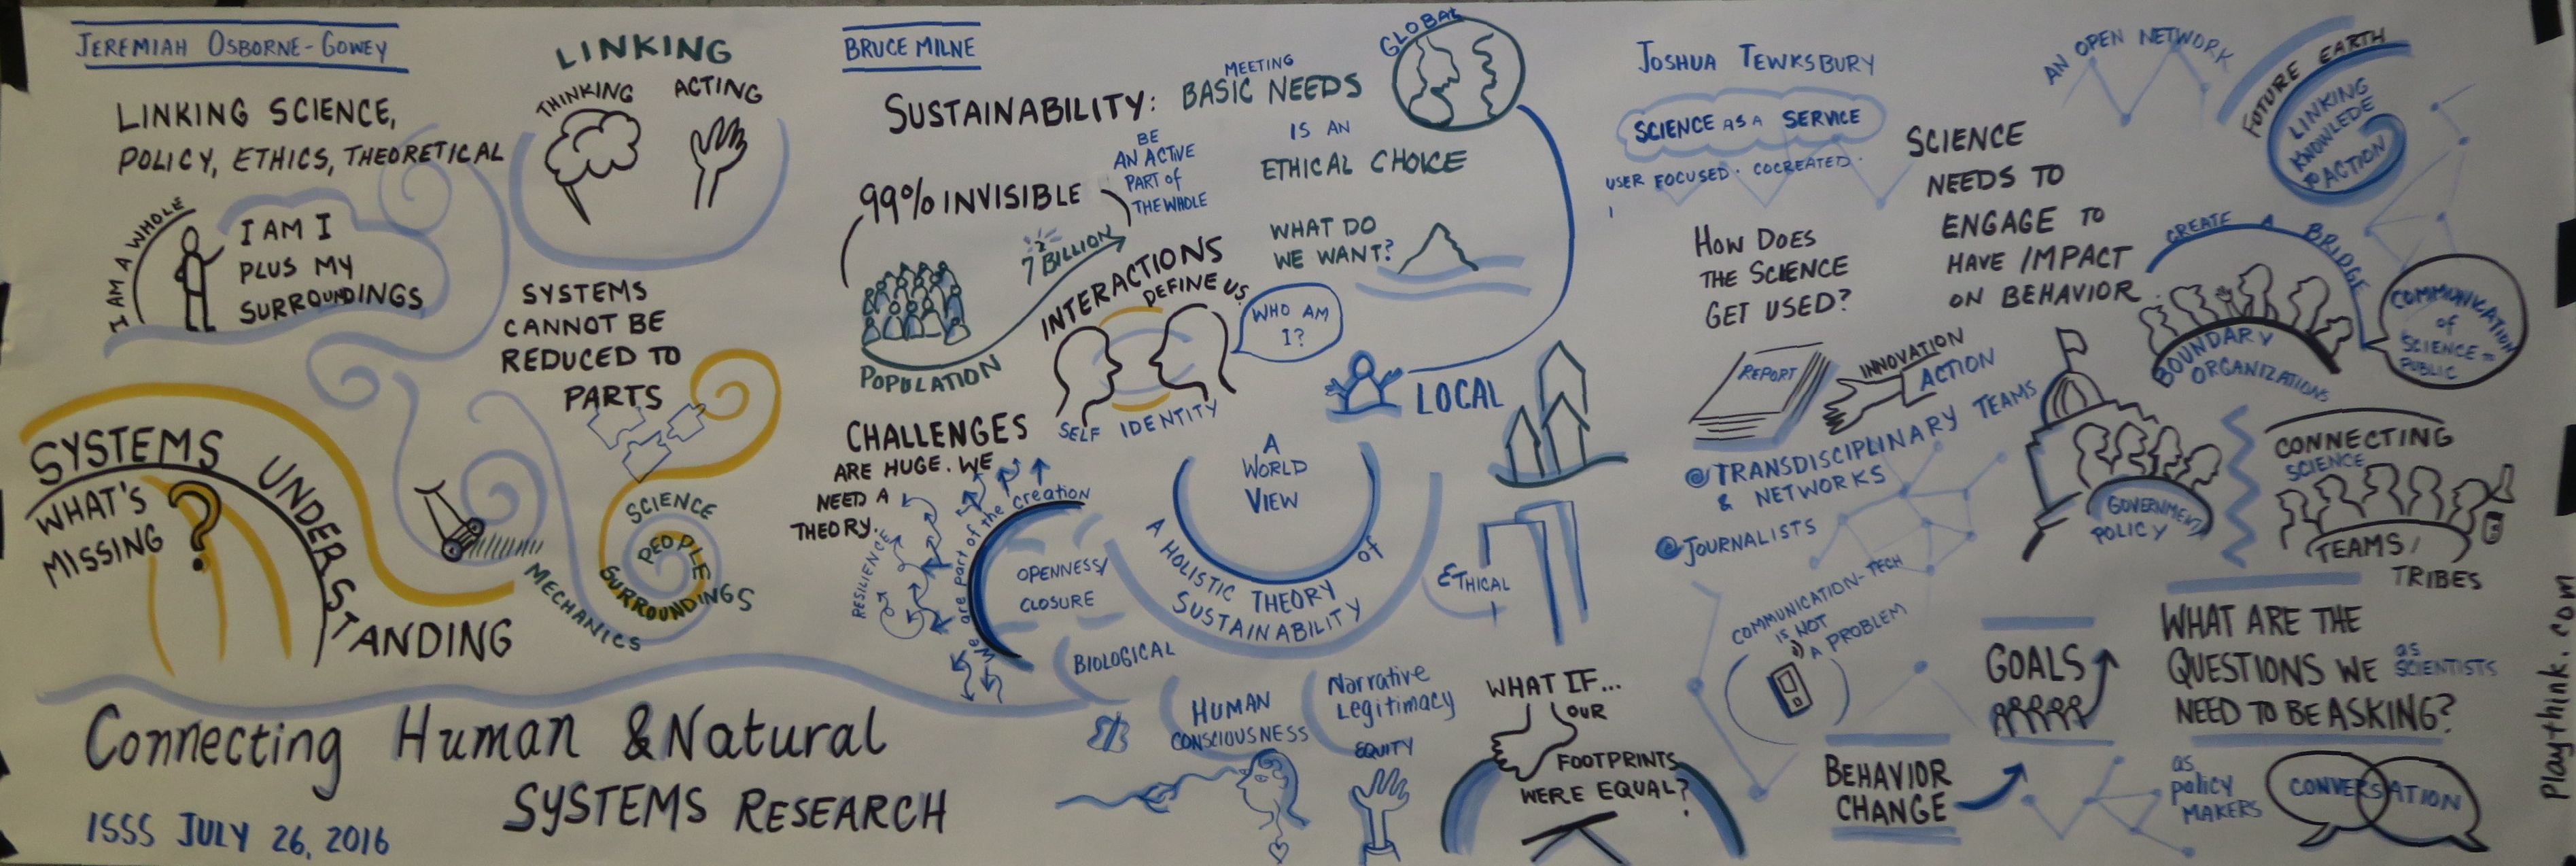 JEREMIAH OSBORNE-GOWEY
LINKING SCIENCE,
POLICY, ETHICS, THEORETICAL
LINKING
THINKING
ACTING
I AM A WHOLE
I AM I
PLUS MY
SURROUNDINGS
SYSTEMS
CANNOT BE
REDUCED TO
PARTS
SYSTEMS
UNDERSTANDING
WHAT'S
MISSING
?
MECHANICS
SCIENCE
PEOPLE
SURROUNDINGS
Connecting Human & Natural
SYSTEMS RESEARCH
ISSS JULY 26, 2016
BRUCE MILNE
SUSTAINABILITY:
MEETING
BASIC NEEDS
IS AN
ETHICAL CHOICE
GLOBAL
99% INVISIBLE
BE
AN ACTIVE
PART of
THE WHOLE
7 BILLION
POPULATION
INTERACTIONS
DEFINE US
WHO AM
I?
SELF IDENTITY
WHAT DO
WE WANT?
LOCAL
CHALLENGES
ARE HUGE. WE
NEED A
THEORY.
RESILIENCE
We are part of the creation
OPENNESS/
CLOSURE
A
WORLD
VIEW
A HOLISTIC THEORY of
SUSTAINABILITY
ETHICAL
BIOLOGICAL
HUMAN
CONSCIOUSNESS
Narrative
Legitimacy
EQUITY
WHAT IF...
OUR
FOOTPRINTS
WERE EQUAL?
JOSHUA TEWKSBURY
SCIENCE AS A SERVICE
USER FOCUSED. COCREATED.
HOW DOES
THE SCIENCE
GET USED?
REPORT
INNOVATION
ACTION
@ TRANSDISCIPLINARY TEAMS
& NETWORKS
@ JOURNALISTS
COMMUNICATION-TECH
IS NOT
A PROBLEM
SCIENCE
NEEDS TO
ENGAGE TO
HAVE IMPACT
ON BEHAVIOR
AN OPEN NETWORK
FUTURE EARTH
LINKING
KNOWLEDE
TO ACTION
CREATE A BRIDGE
BOUNDARY
ORGANIZATIONS
COMMUNICATION
of
SCIENCE =
PUBLIC
GOVERNMENT/
POLICY
CONNECTING
SCIENCE
TEAMS/
TRIBES
GOALS
BEHAVIOR
CHANGE
WHAT ARE THE
QUESTIONS WE as SCIENTISTS
NEED TO BE ASKING?
as
policy
MAKERS
CONVERSATION
Playthink.com